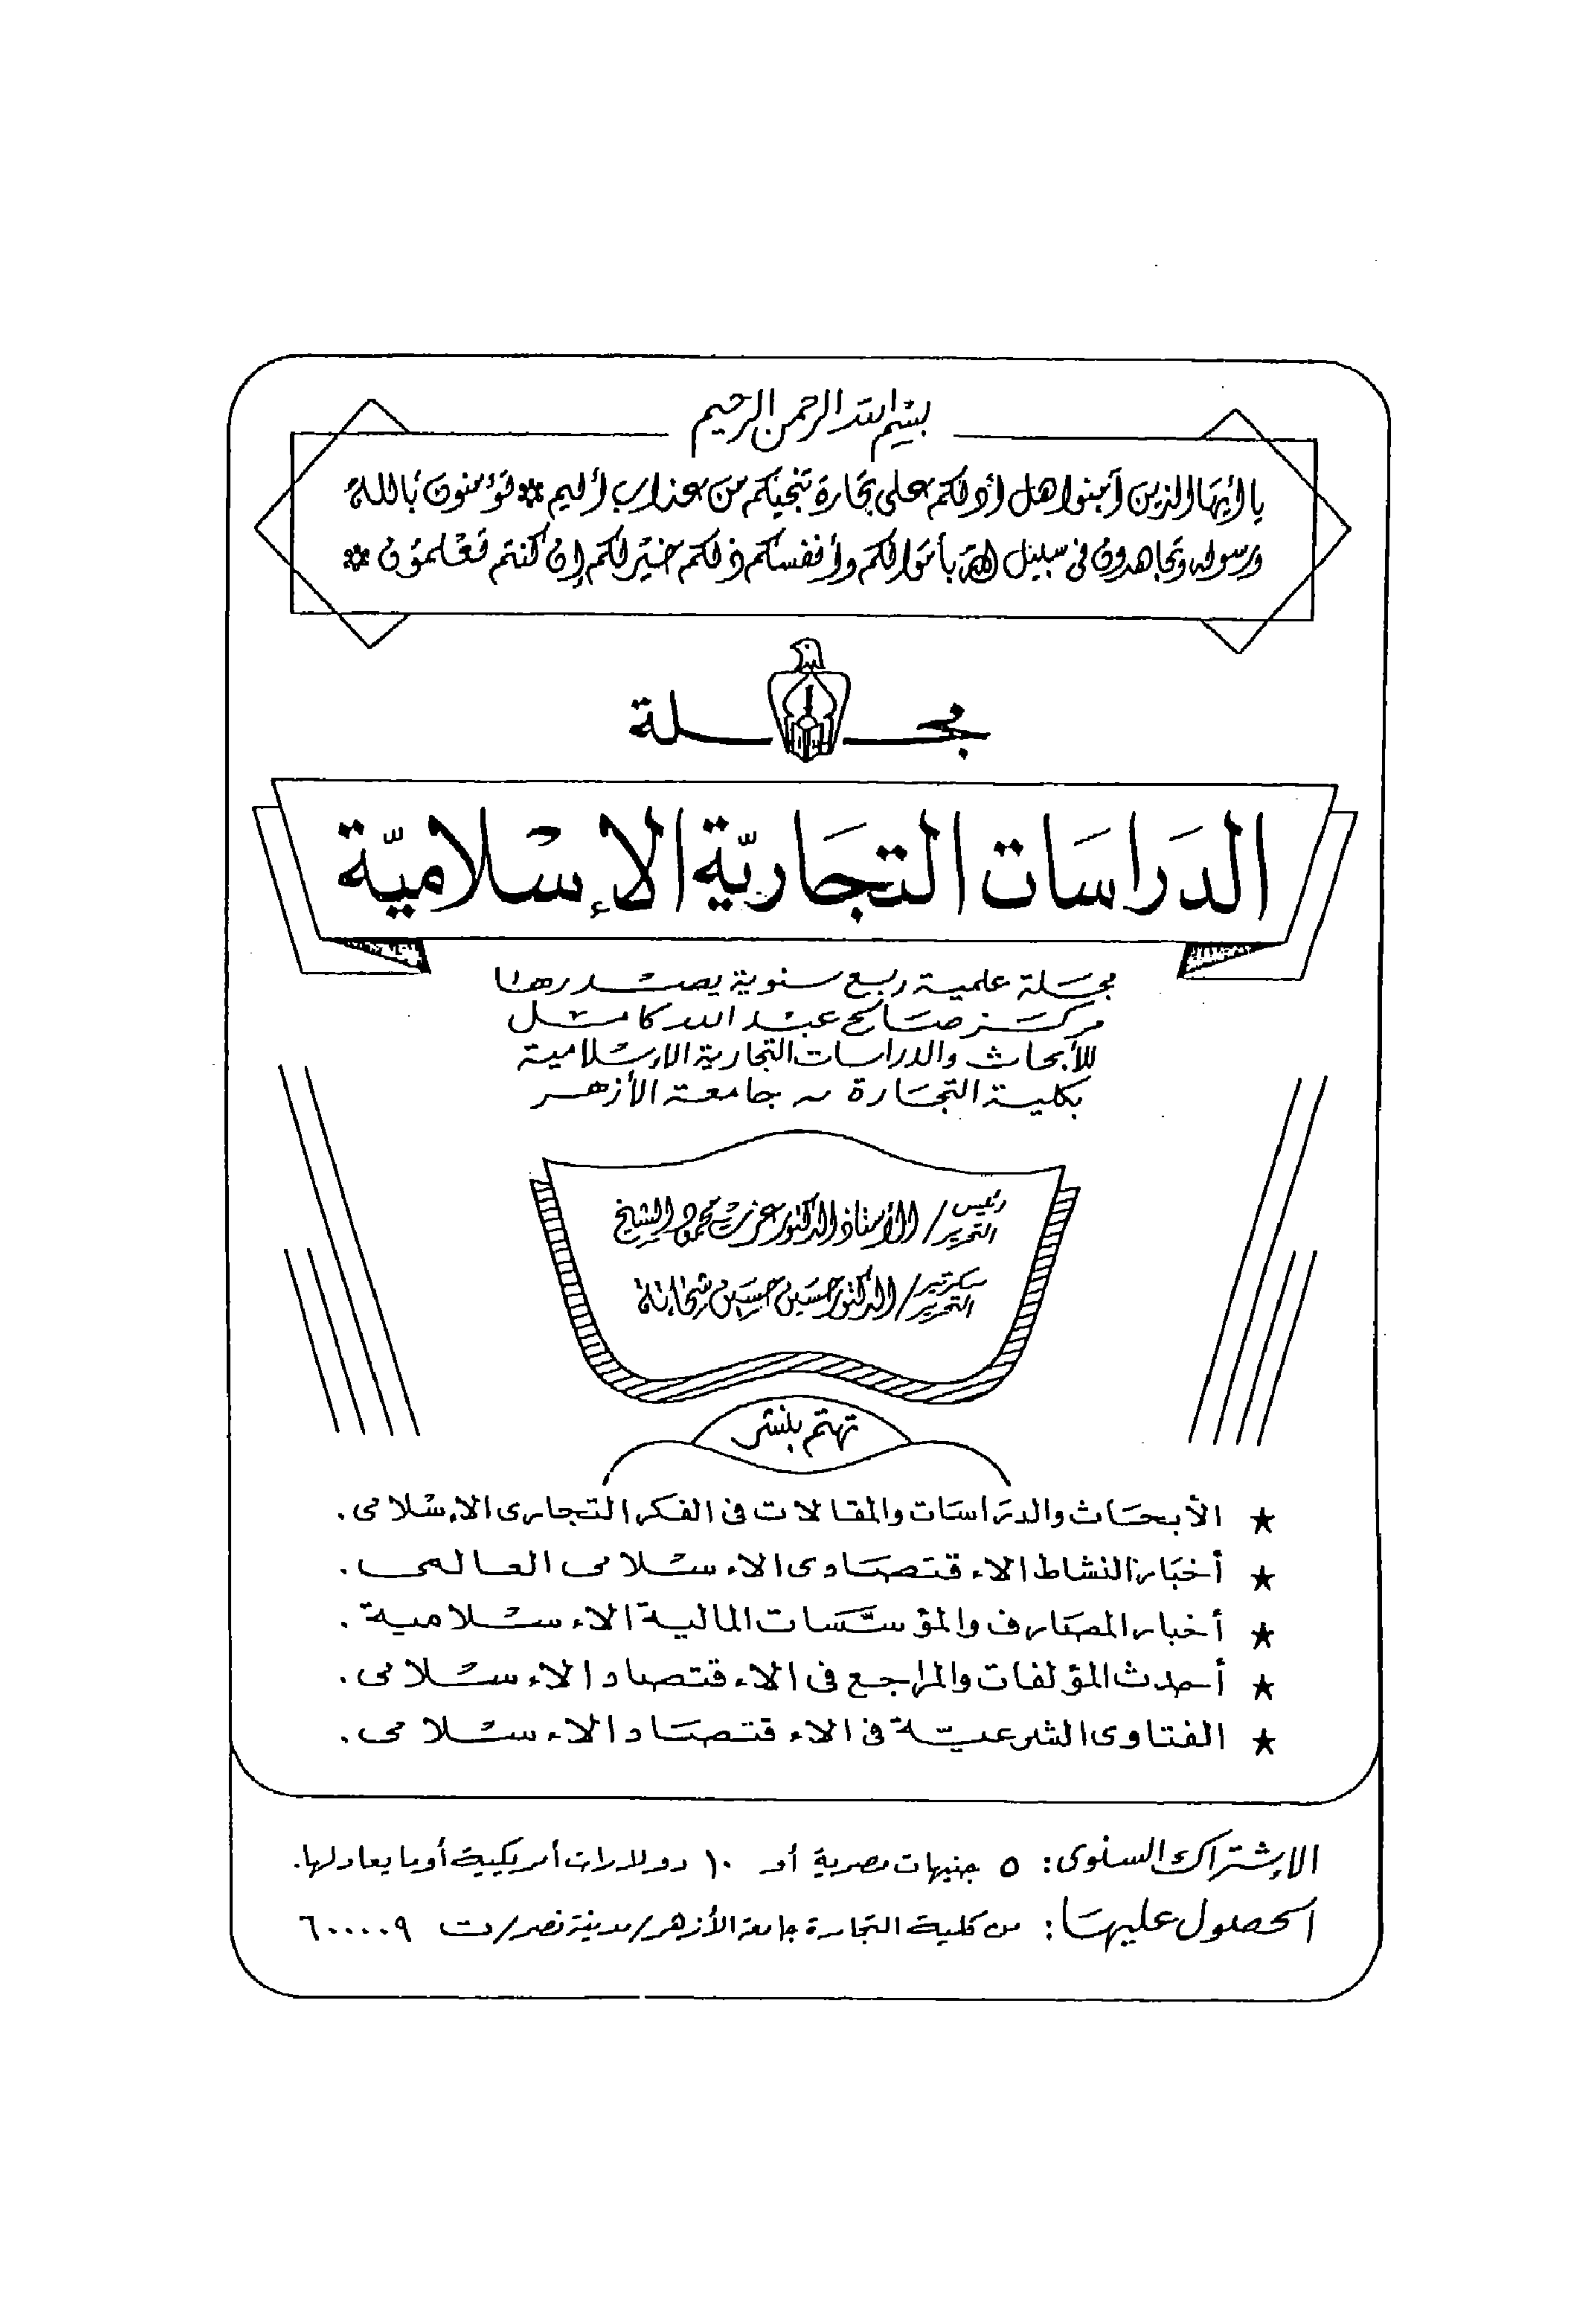 بسم الله الرحمن الرحيم
يا أيها الذين آمنوا هل أدلكم على تجارة تنجيكم من عذاب أليم * تؤمنون بالله
ورسوله وتجاهدون في سبيل الله بأموالكم وأنفسكم ذلكم خير لكم إن كنتم تعلمون *
مجلة
الدراسات التجارية الإسلامية
مجلة علمية ربع سنوية يصدرها
مركز صالح عبد الله كامل
للأبحاث والدراسات التجارية الإسلامية
بكلية التجارة - جامعة الأزهر
رئيس التحرير / الأستاذ الدكتور عزت محمود الشيخ
سكرتير التحرير / الدكتور حسين حسين شحاتة
تهتم بنشر
★ الأبحاث والدراسات والمقالات في الفكر التجارى الإسلامى.
★ أخبار النشاط الاقتصادى الإسلامى العالمى.
★ أخبار المصارف والمؤسسات المالية الإسلامية.
★ أحدث المؤلفات والمراجع فى الاقتصاد الإسلامى.
★ الفتاوى الشرعية فى الاقتصاد الإسلامى.
الإشتراك السنوى: ٥ جنيهات مصرية أو ١٠ دولارات أمريكية أو ما يعادلها.
الحصول عليها: من كلية التجارة جامعة الأزهر/مدينة نصر/ت ٦٠٠٠٠٩